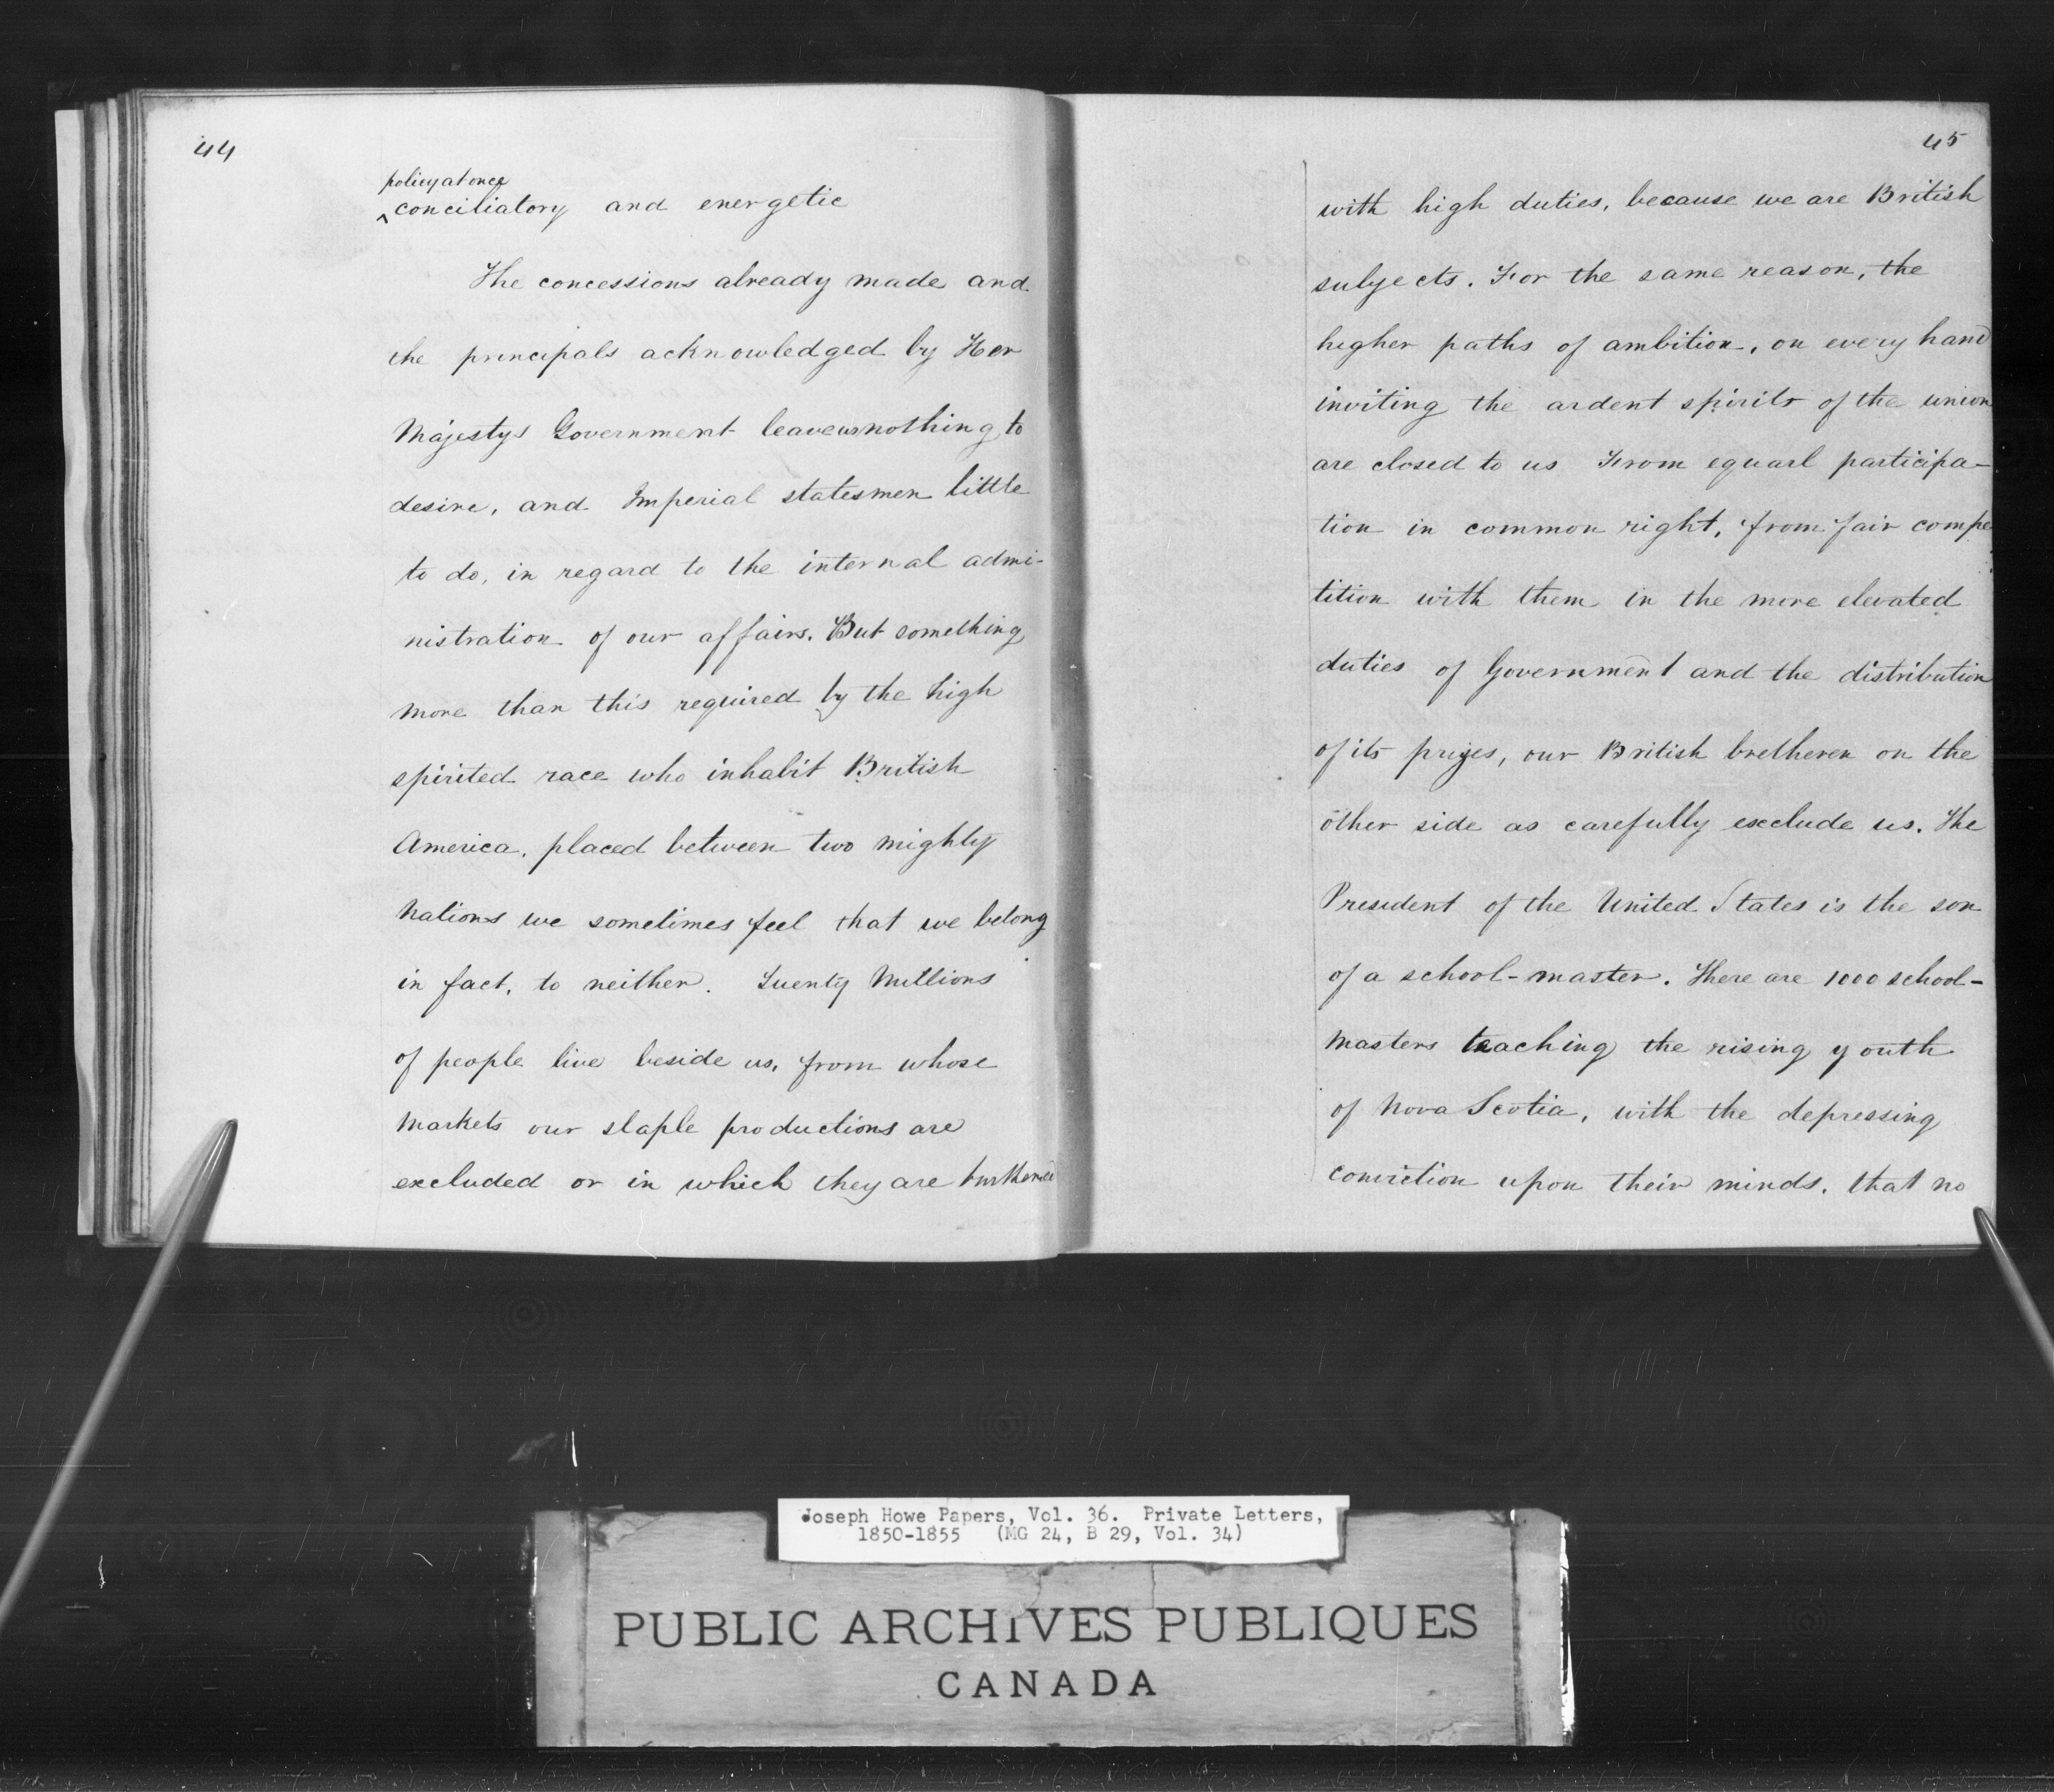 44
policy at once
^conciliatory and energetic
The concessions already made and
the principals acknowledged by Her
Majestys Government leave us nothing to
desire, and Imperial statesmen little
to do, in regard to the internal admi-
nistration of our affairs. But something
more than this required by the high
spirited race who inhabit British
America, placed between two mighty
Nations we sometimes feel that we belong
in fact, to neither. Twenty Millions
of people live beside us, from whose
Markets our staple productions are
excluded or in which they are burthened
45
with high duties, because we are British
subjects. For the same reason, the
higher paths of ambition, on every hand
inviting the ardent spirits of the union
are closed to us From equarl participa-
tion in common right, from fair compe
tition with them in the more elevated
duties of Government and the distribution
of its prizes, our British bretheren on the
other side as carefully exclude us. The
President of the United States is the son
of a school-master. There are 1000 school-
Masters teaching the rising youth
of Nova Scotia, with the depressing
conviction upon their minds, that no
Joseph Howe Papers, Vol. 36. Private Letters,
1850-1855 (MG 24, B 29, Vol. 34)
PUBLIC ARCHIVES PUBLIQUES
CANADA